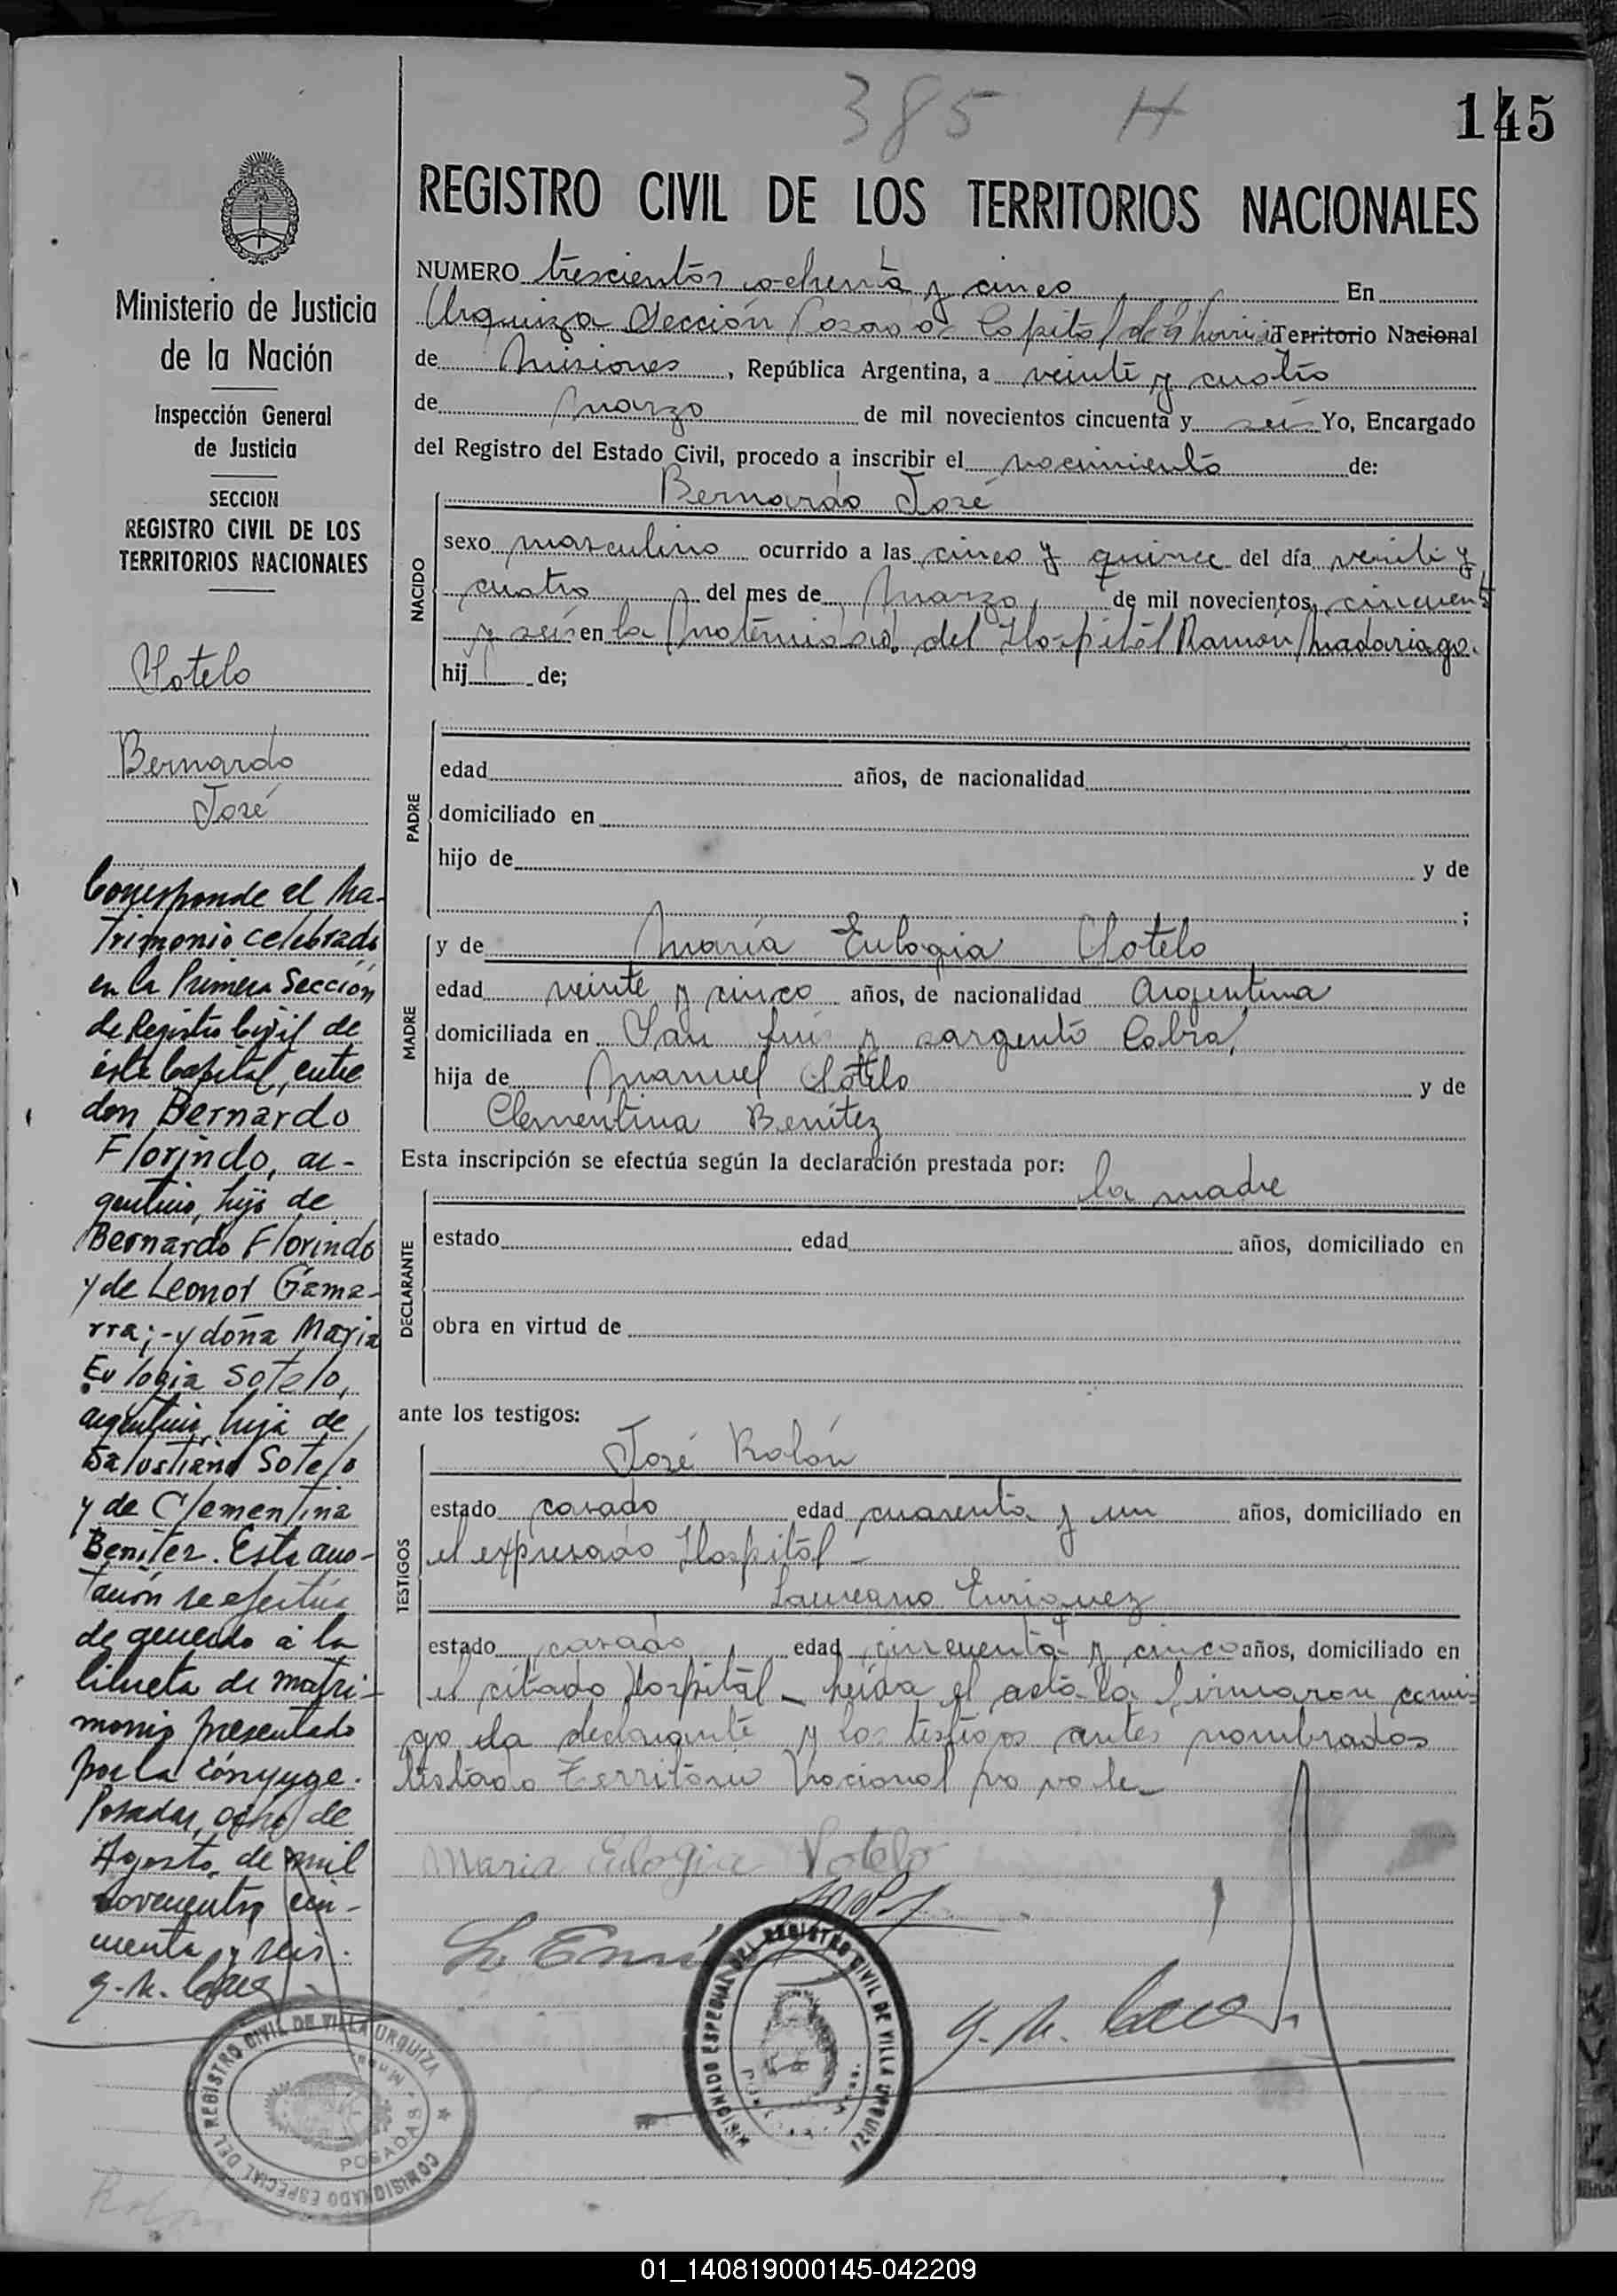 385 H
145
REGISTRO CIVIL DE LOS TERRITORIOS NACIONALES
NUMERO trescientos ochenta y cinco En
Urquiza Sección Posadas Capital de la Territorio Nacional
de Misiones, República Argentina, a veinte y cuatro
de Marzo de mil novecientos cincuenta y seis Yo, Encargado
del Registro del Estado Civil, procedo a inscribir el nacimiento de:
Bernardo José
NACIDO
sexo masculino ocurrido a las cinco y quince del día veinte y
cuatro del mes de Marzo de mil novecientos cincuenta
y seis en la Maternidad del Hospital Ramón Madariaga.
hij de;
PADRE
edad años, de nacionalidad
domiciliado en
hijo de y de
;
MADRE
y de María Eulogia Sotelo
edad veinte y cinco años, de nacionalidad Argentina
domiciliada en San Luis y sargento Cabral
hija de Manuel Sotelo y de
Clementina Benítez
Esta inscripción se efectúa según la declaración prestada por:
la madre
DECLARANTE
estado edad años, domiciliado en
obra en virtud de
ante los testigos:
TESTIGOS
José Rolón
estado casado edad cuarenta y un años, domiciliado en
el expresado Hospital -
Laureano Enriquez
estado casado edad cincuenta y cinco años, domiciliado en
el citado Hospital - Leída el acta la firmaron conmi-
go la declarante y los testigos antes nombrados
testado Territorio Nacional no vale
Maria Eulogia Sotelo
COMISIONADO ESPECIAL DEL REGISTRO CIVIL DE VILLA URQUIZA
Ministerio de Justicia
de la Nación
Inspección General
de Justicia
SECCION
REGISTRO CIVIL DE LOS
TERRITORIOS NACIONALES
Sotelo
Bernardo
José
Corresponde el Ma-
trimonio celebrado
en la Primera Sección
de Registro Civil de
ésta Capital, entre
don Bernardo
Florindo, ar-
gentino, hijo de
Bernardo Florindo
y de Leonor Gama-
rra;- y doña Maria
Eulogia Sotelo,
argentina, hija de
Salustiano Sotelo
y de Clementina
Benitez. Esta ano-
tación se efectúa
de acuerdo a la
libreta de matri-
monio presentado
por la cónyuge.
Posadas, ocho de
Agosto de mil
novecientos cin-
cuenta y seis.
COMISIONADO ESPECIAL DEL REGISTRO CIVIL DE VILLA URQUIZA
POSADAS
01_140819000145-042209